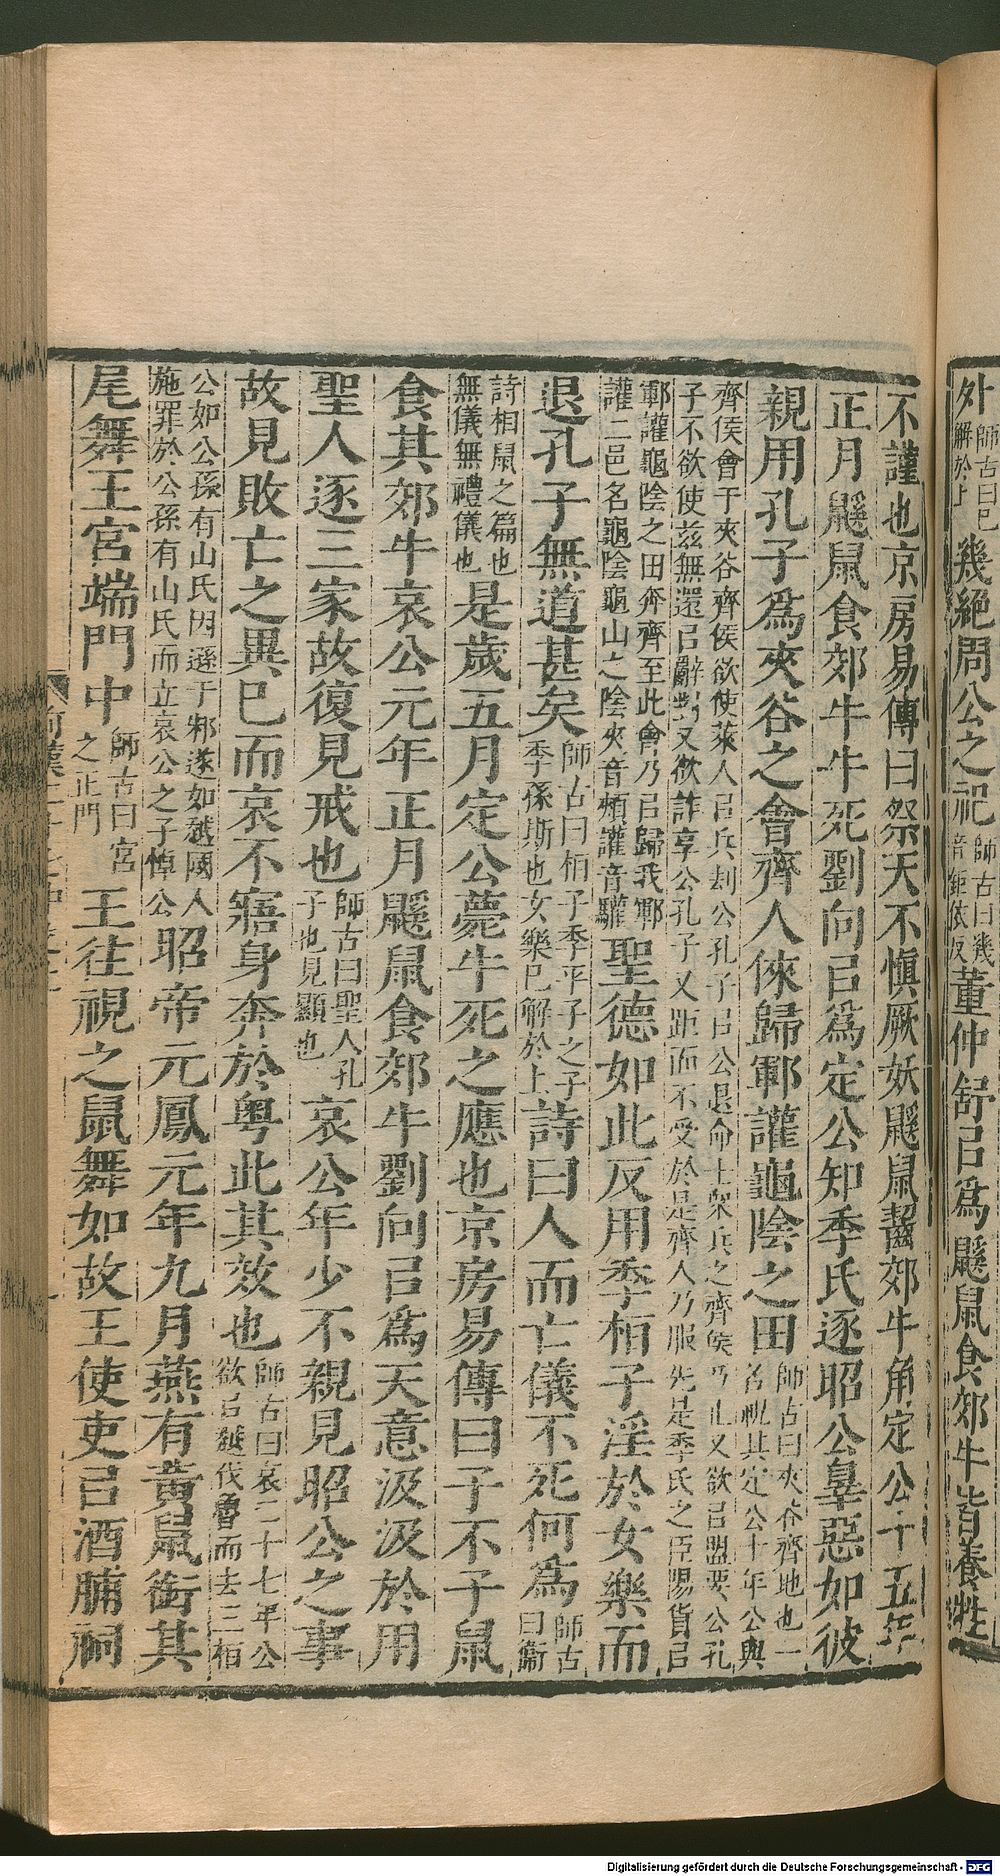 外師古曰已解於上幾絕周公之祀師古曰幾音鉅依反董仲舒㠯爲鼷鼠食郊牛皆養牲
不謹也京房易傳曰祭天不慎厥妖鼷鼠齧郊牛角定公十五年
正月鼷鼠食郊牛牛死劉向㠯爲定公知季氏逐昭公辠惡如彼
親用孔子爲夾谷之會齊人倈歸鄆讙龜陰之田師古曰夾谷齊地也一名祝其定公十年公與
齊侯會于夾谷齊侯欲使萊人㠯兵刦公孔子㠯公退命士衆兵之齊侯乃止又欲㠯盟要公孔
子不欲使茲無還㠯辭對又欲詐享公孔子又距而不受於是齊人乃服先是季氏之臣陽貨㠯
鄆讙龜陰之田奔齊至此會乃㠯歸我鄆
讙二邑名龜陰龜山之陰夾音頰讙音驩聖德如此反用季桓子淫於女樂而
退孔子無道甚矣師古曰桓子季平子之子季孫斯也女樂已解於上詩曰人而亡儀不死何爲師古曰衞
詩相鼠之篇也
無儀無禮儀也是歲五月定公薨牛死之應也京房易傳曰子不子鼠
食其郊牛哀公元年正月鼷鼠食郊牛劉向㠯爲天意汲汲於用
聖人逐三家故復見戒也師古曰聖人孔子也見顯也哀公年少不親見昭公之事
故見敗亡之異已而哀不寤身奔於粵此其效也師古曰哀二十七年公欲㠯越伐魯而去三桓
公如公孫有山氏因遜于邾遂如越國人
施罪於公孫有山氏而立哀公之子悼公昭帝元鳳元年九月燕有黃鼠銜其
尾舞王宮端門中師古曰宮之正門王往視之鼠舞如故王使吏㠯酒脯祠